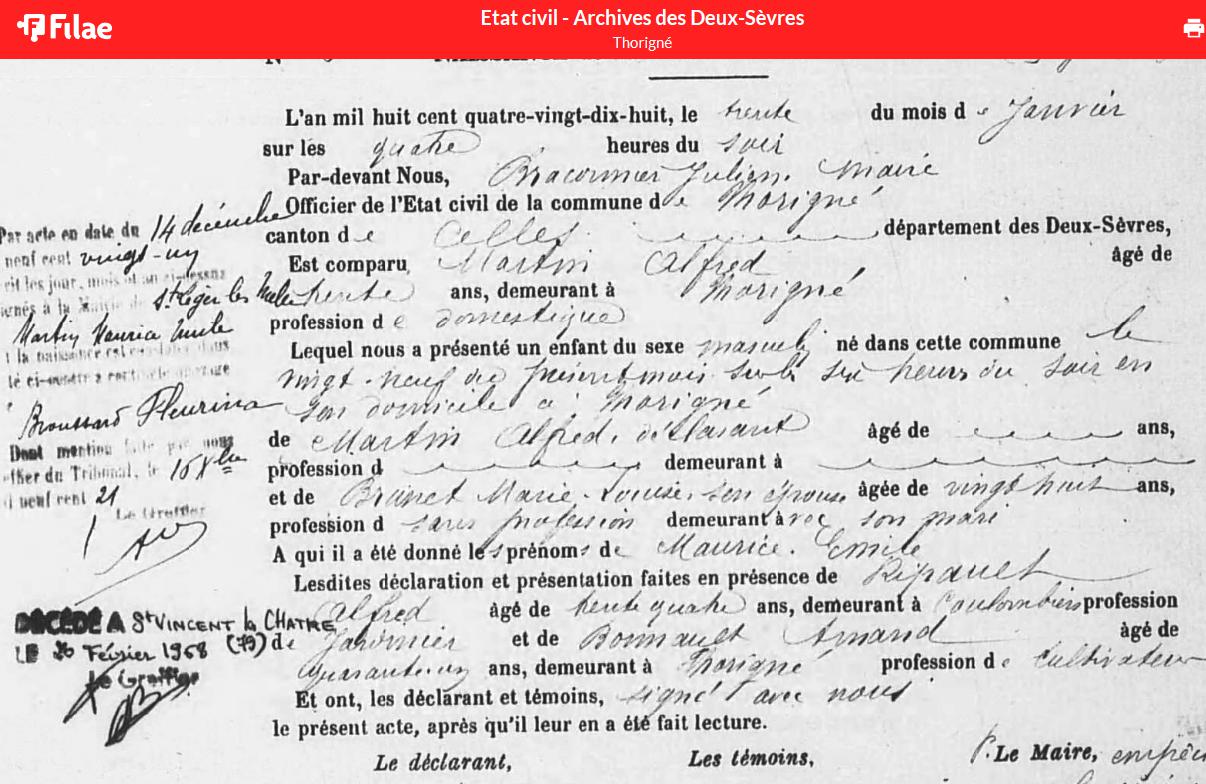 Filae
Etat civil - Archives des Deux-Sèvres
Thorigné
L'an mil huit cent quatre-vingt-dix-huit, le trente du mois de Janvier
sur les quatre heures du soir
Par-devant Nous, Braconnier Julien. Maire
Officier de l'Etat civil de la commune de Thorigné
canton de Celles département des Deux-Sèvres,
Est comparu Martin Alfred âgé de
trente ans, demeurant à Thorigné
profession de domestique
Lequel nous a présenté un enfant du sexe masculin né dans cette commune le
vingt-neuf du présent mois sur les six heures du soir en
son domicile à Thorigné
de Martin Alfred, déclarant âgé de ans,
profession d demeurant à
et de Brunet Marie-Louise, son épouse, âgée de vingt huit ans,
profession d sans profession demeurant avec son mari
A qui il a été donné les prénoms de Maurice. Emile
Lesdites déclaration et présentation faites en présence de Ripault
Alfred âgé de trente quatre ans, demeurant à Coulombiers profession
de et de Bonnault Amand âgé de
quarante-un ans, demeurant à Thorigné profession de Cultivateur
Et ont, les déclarant et témoins, signé avec nous
le présent acte, après qu'il leur en a été fait lecture.
Le déclarant, Les témoins, P. Le Maire,
Par acte en date du 14 décembre
neuf cent vingt-un
Martin Maurice Emile
Broussard Fleurina
Dont mention faite par nous
Greffier du Tribunal, le 16 Xbre
neuf cent 21
Le Greffier
DÉCÉDÉ A St VINCENT la CHATRE
LE 26 Février 1968 (79)
Le Greffier